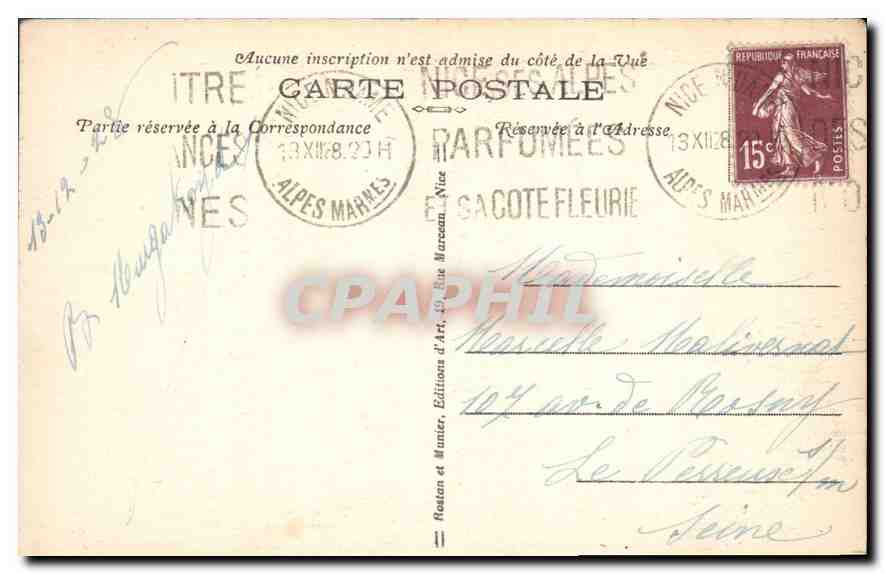 Aucune inscription n'est admise du côté de la Vue
CARTE POSTALE
Partie réservée à la Correspondance
Réservée à l'Adresse
REPUBLIQUE FRANÇAISE
15c
POSTES
ITRE
ANCES
NES
13 XII 28. 20 H
ALPES MARMES
NICE DES ALPES
PARFUMÉES
ET SA COTE FLEURIE
13 XII 28. 20
ALPES MARIMES
13-12-28
Rostan et Munier, Editions d'Art, 19, Rue Marceau, Nice
CPAPHIL
Mademoiselle
Marcelle Malivernat
107 av. de Rosny
Le Perreux s/m
Seine